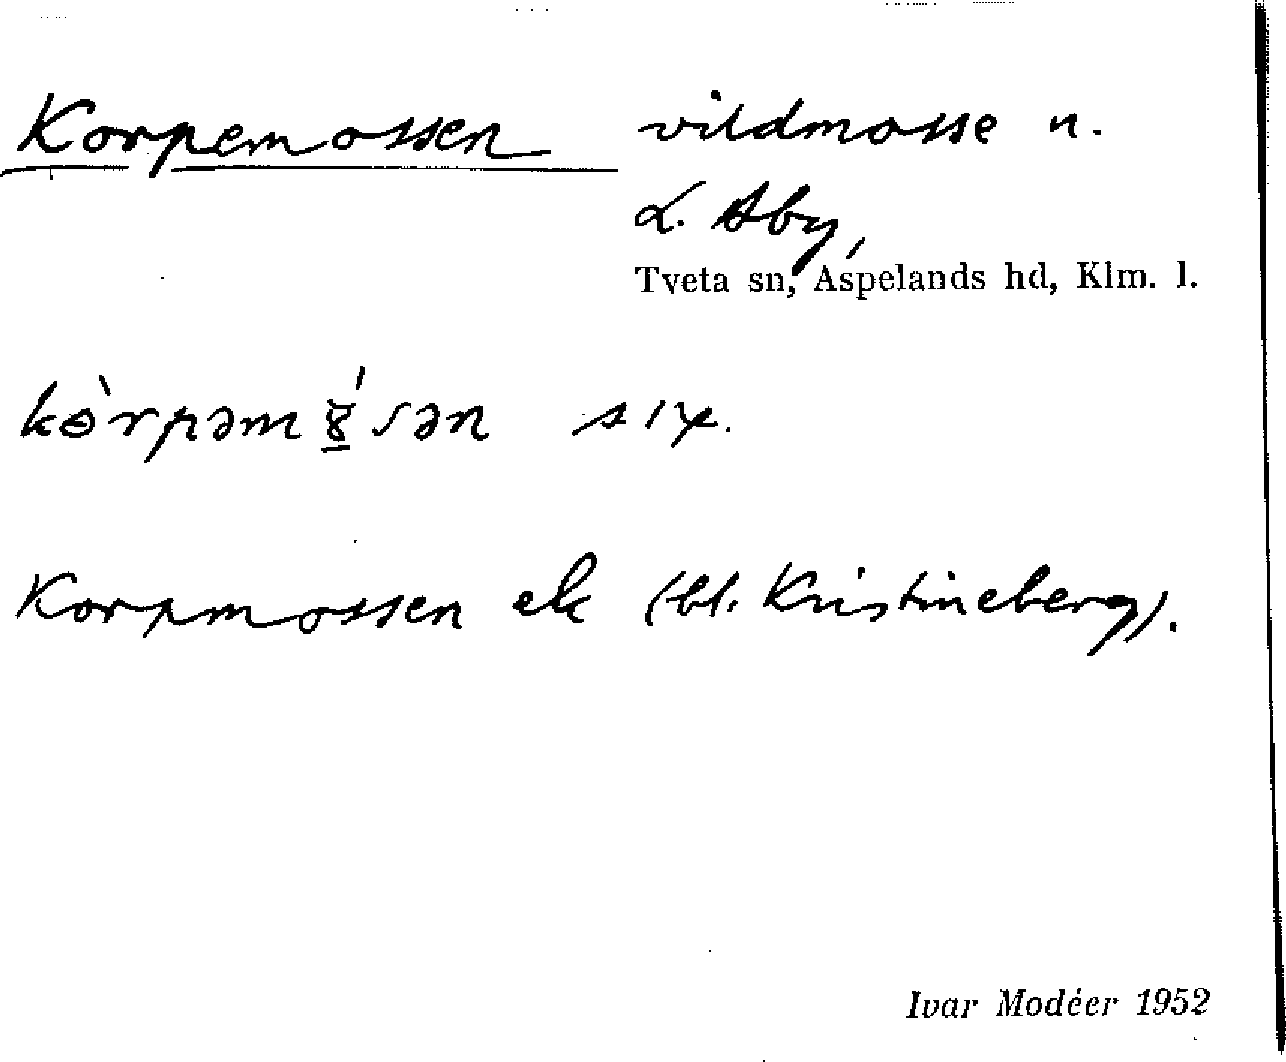 Korpemossen vildmosse n.
L. Åby,
Tveta sn, Aspelands hd, Klm. l.
kɵ̀rpəm 8̱́ sən
Korpmossen ek (bl. Kristineberg).
Ivar Modéer 1952